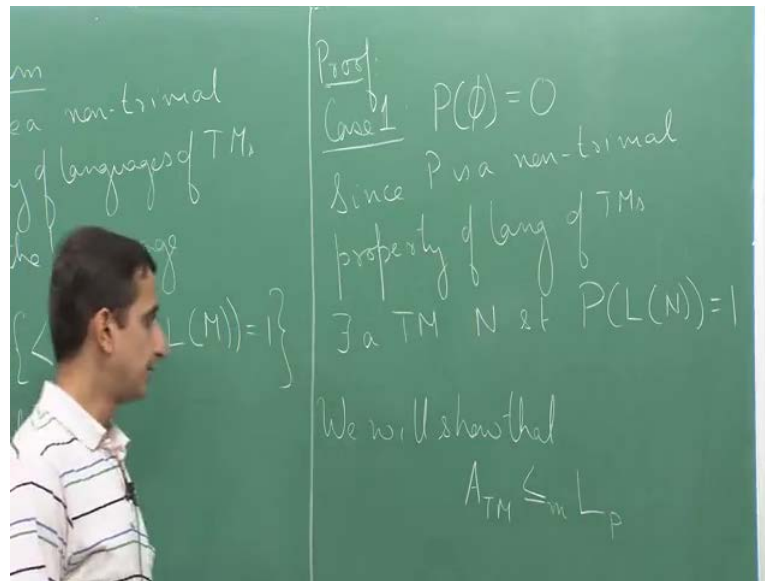 m
ea non-trivial
y of languages of TMs
the
{< L(M))=1}
Proof:
Case 1 P(ϕ)=0
Since P is a non-trivial
property of lang of TMs
∃ a TM N st P(L(N))=1
We will show that
A_TM ≤_m L_P